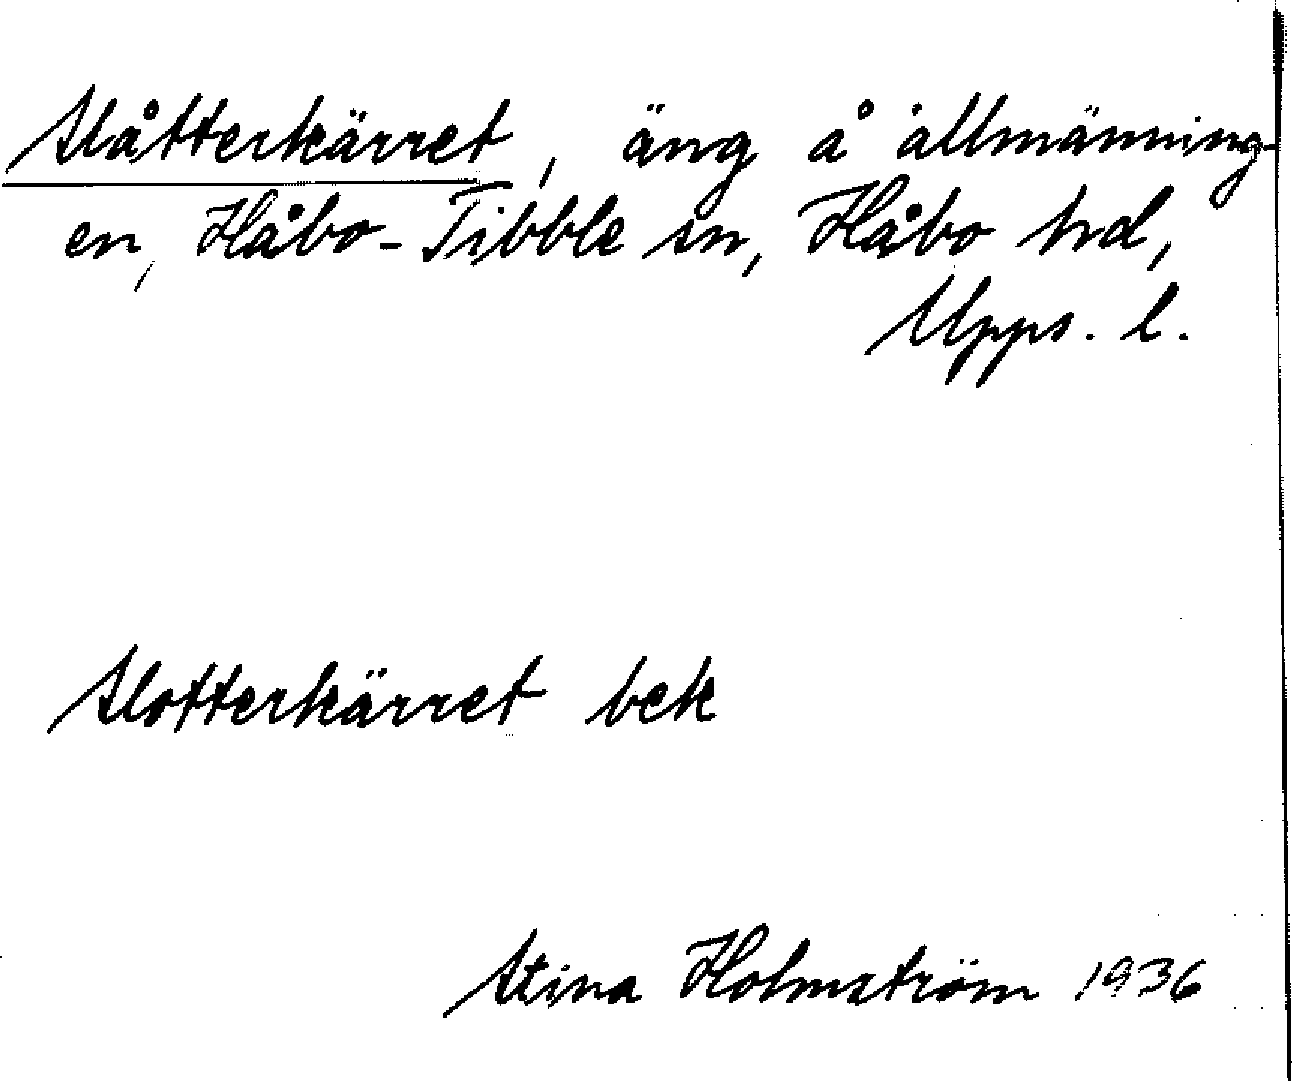 Slåtterkärret, äng å allmänning-
en, Håbo-Tibble sn, Håbo hd,
Upps. l.
Slotterkärret bek
Stina Holmström 1936